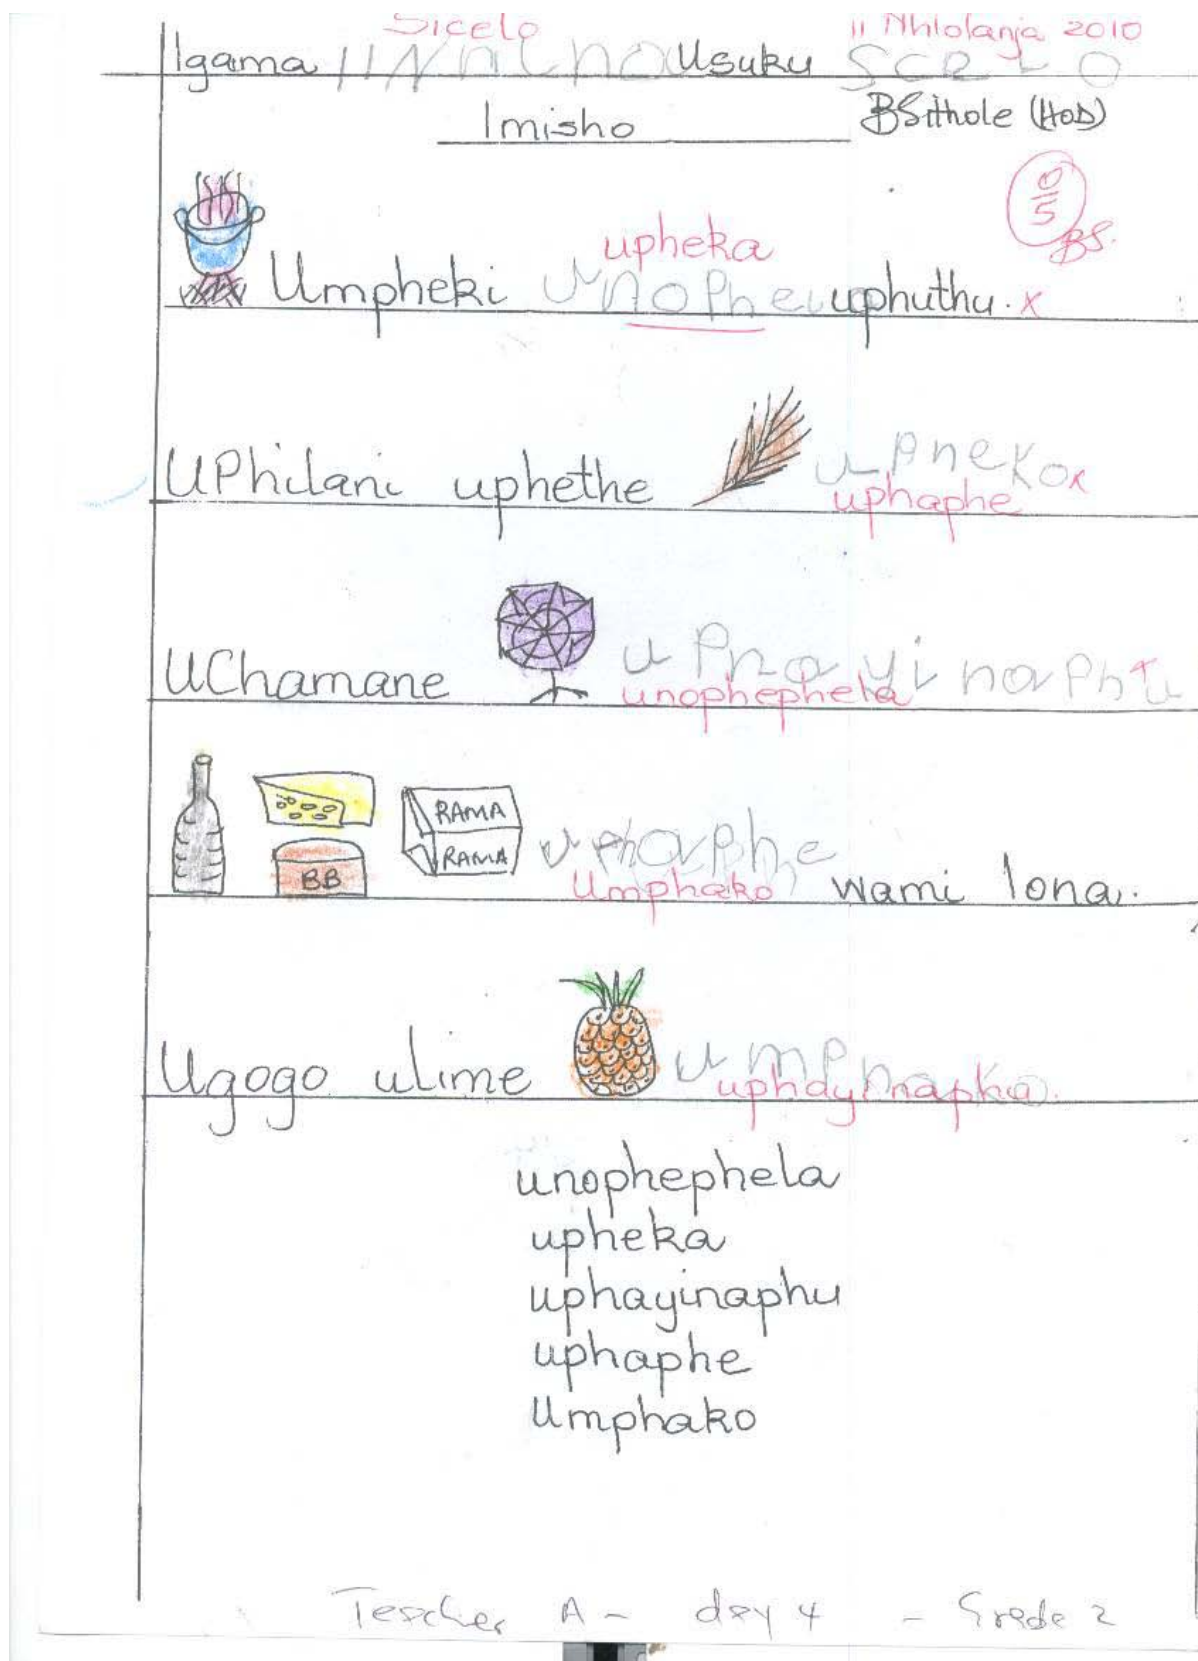 Sicelo 11 Nhlolanja 2010
Igama Usuku
Imisho BSithole (HOD)
0/5
BS.
upheka
Umpheki unophe uphuthu. x
UPhilani uphethe upneko x
uphaphe
UChamane upnayinaphu
unophephela
RAMA
RAMA
BB
uphaphe wami lona.
Umphako
Ugogo ulime umpnako
uphayinapha.
unophephela
upheka
uphayinaphu
uphaphe
Umphako
Teacher A - day 4 - Grade 2